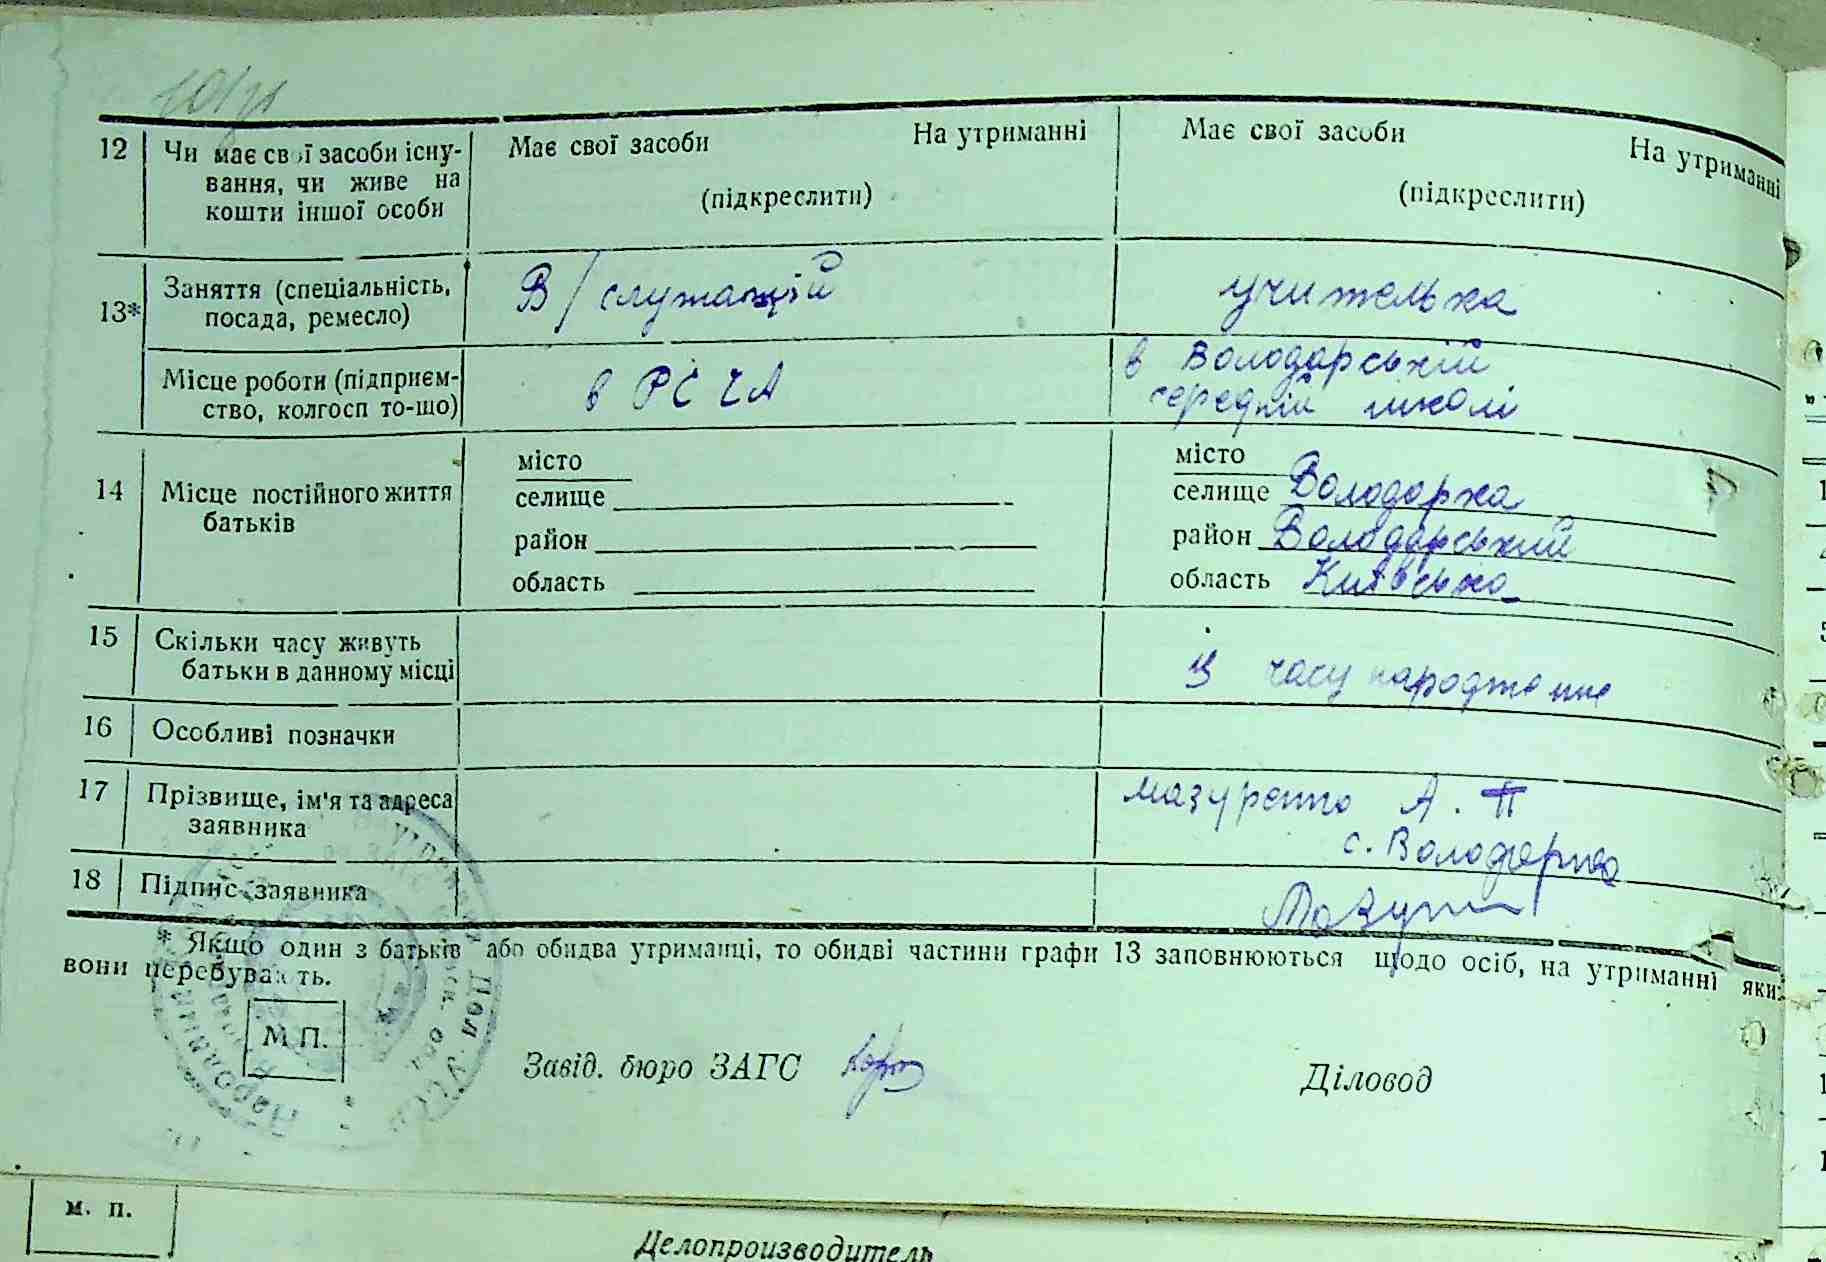 12 Чи має свої засоби існу- Має свої засоби На утриманні Має свої засоби На утриманні
вання, чи живе на (підкреслити) (підкреслити)
кошти іншої особи
13* Заняття (спеціальність, В/служащій учителька
посада, ремесло)
Місце роботи (підприєм- в РСЧА в Володарській
ство, колгосп то-що) середній школі
14 Місце постійного життя місто місто
батьків селище селище Володарка
район район Володарський
область область Київська
15 Скільки часу живуть
батьки в данному місці з часу народження
16 Особливі позначки
17 Прізвище, ім'я та адреса Мазуренко А. П
заявника с. Володарка
18 Підпис заявника
* Якщо один з батьків або обидва утриманці, то обидві частини графи 13 заповнюються щодо осіб, на утриманні яких
вони перебувають.
М П.
Завід. бюро ЗАГС Діловод
м. п.
Делопроизводитель